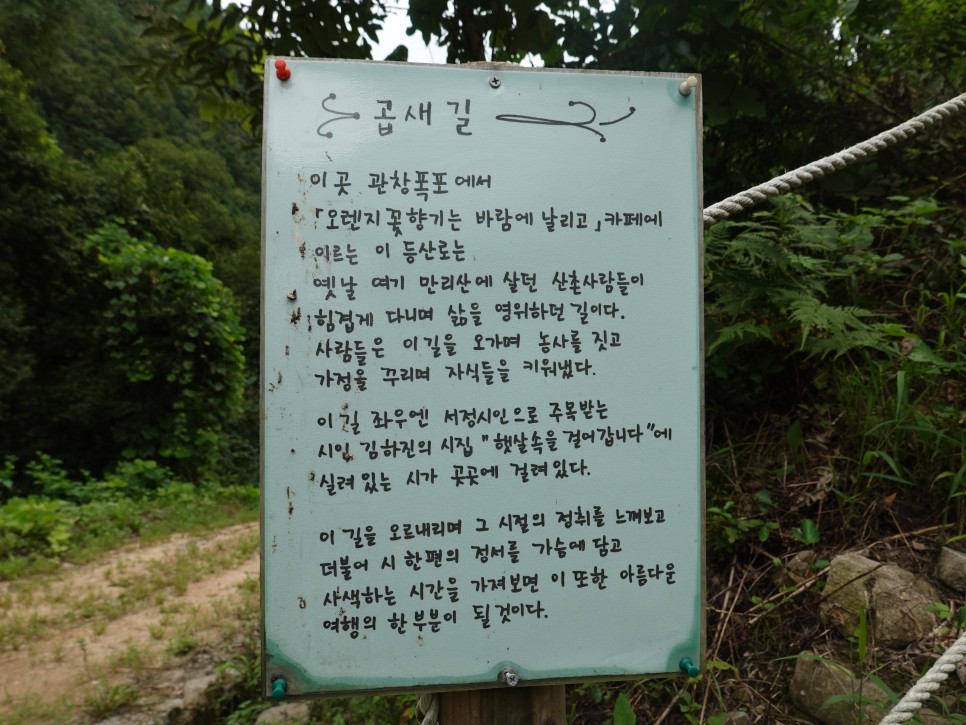 곱새길
이곳 관창폭포에서
「오렌지꽃향기는 바람에 날리고」카페에
이르는 이 등산로는
옛날 여기 만리산에 살던 산촌사람들이
힘겹게 다니며 삶을 영위하던 길이다.
사람들은 이길을 오가며 농사를 짓고
가정을 꾸리며 자식들을 키워냈다.
이길 좌우엔 서정시인으로 주목받는
시인 김하진의 시집 "햇살속을 걸어갑니다"에
실려있는 시가 곳곳에 걸려있다.
이길을 오르내리며 그 시절의 정취를 느껴보고
더불어 시 한편의 정서를 가슴에 담고
사색하는 시간을 가져보면 이 또한 아름다운
여행의 한부분이 될것이다.